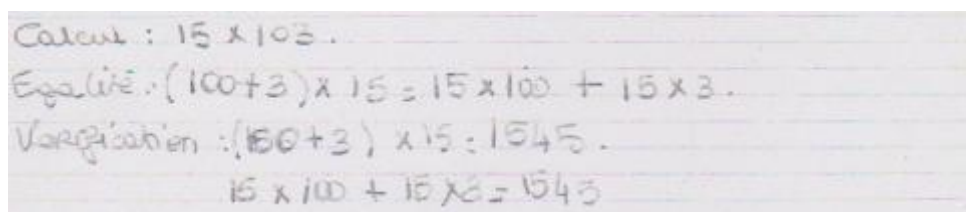 Calcul : 15 x 103.
Egalité : (100+3) x 15 = 15 x 100 + 15 x 3.
Verification : (100+3) x 15 = 1545.
15 x 100 + 15 x 3 = 1545